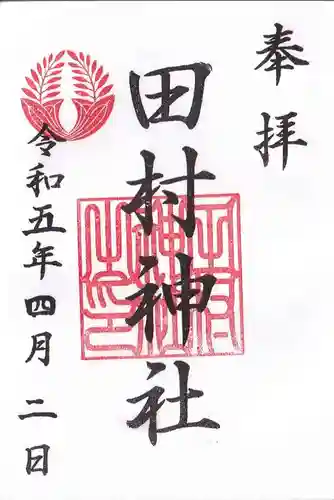 奉拝
田村神社
令和五年四月二日